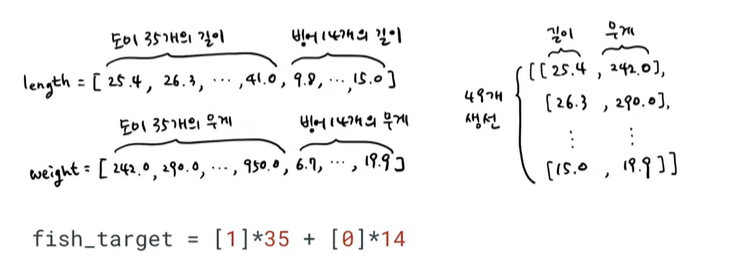 도미 35개의 길이 빙어 14개의 길이
length = [ 25.4, 26.3, ..., 41.0, 9.8, ..., 15.0 ]
도미 35개의 무게 빙어 14개의 무게
weight = [ 242.0, 290.0, ..., 950.0, 6.7, ..., 19.9 ]
길이 무게
49개 생선
[[ 25.4 , 242.0],
[26.3 , 290.0],
⋮ ⋮
[15.0 , 19.9]]
fish_target = [1]*35 + [0]*14